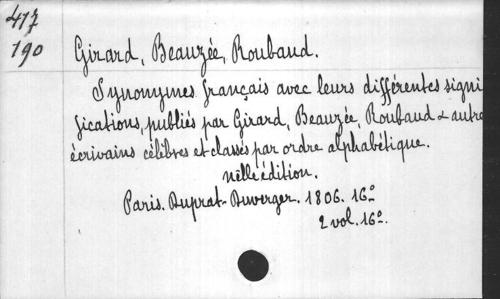 417
190
Girard, Beauzée, Roubaud.
Synonymes français avec leurs différentes signi
fications, publiés par Girard, Beauzée, Roubaud & autre
écrivains célèbres et classés par ordre alphabétique.
nelle édition.
Paris. Duprat-Duverger. 1806. 16º
2 vol. 16º.